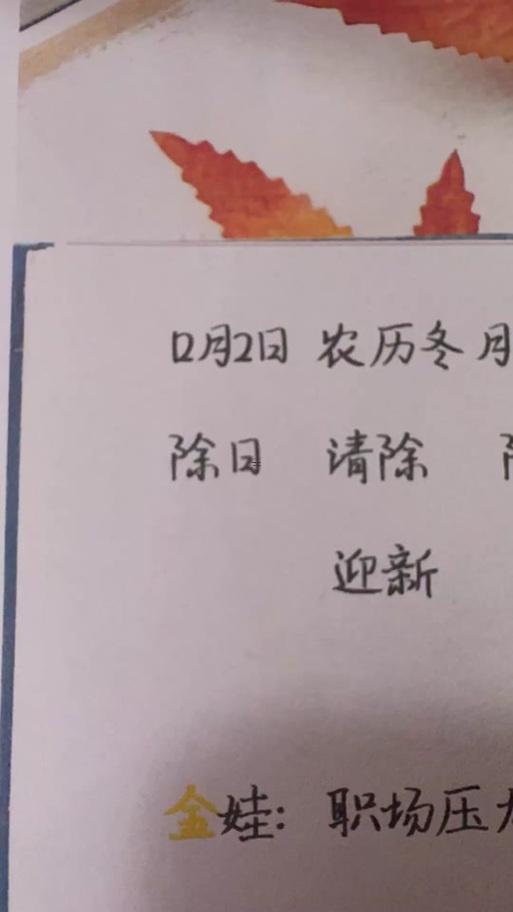 12月2日 农历冬月
除日 清除
迎新
金娃：职场压